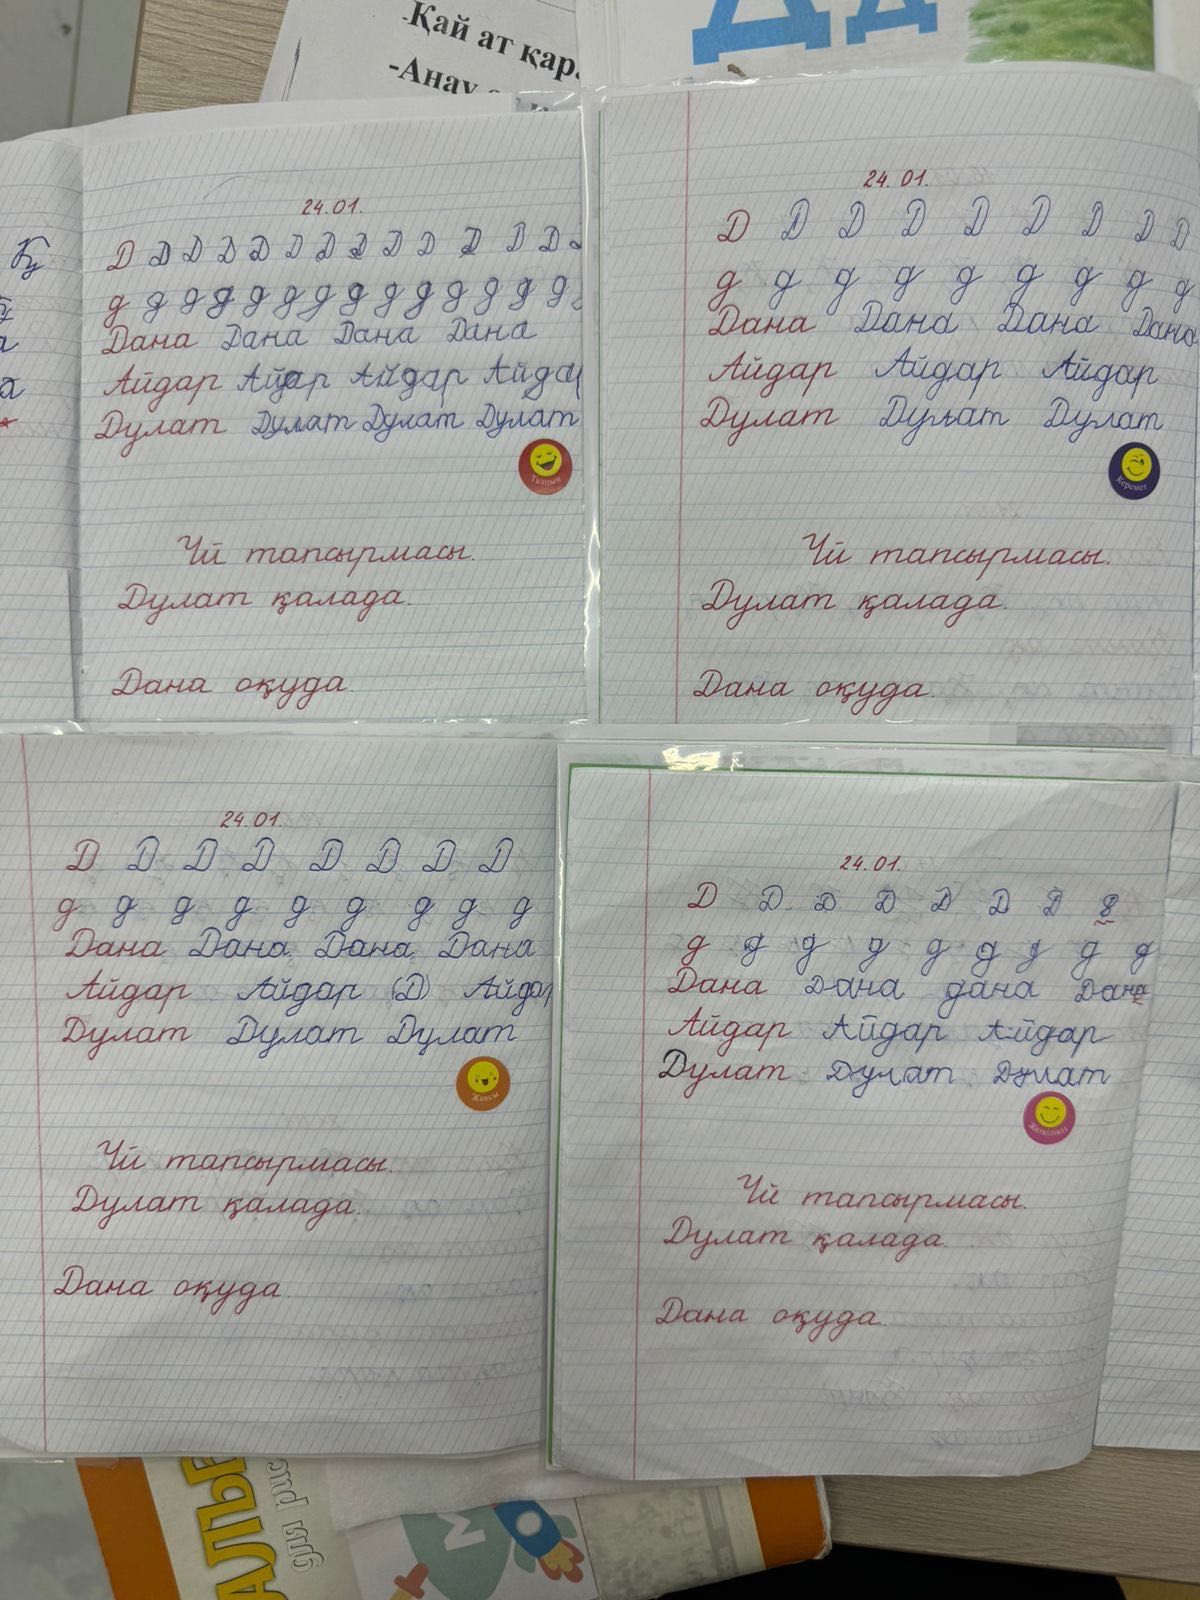 -Қай ат қара
-Анау
Дд
Қу
24.01.
Д Д Д Д Д Д Д Д Д Д Д Д Д
д д д д д д д д д д д д д д
Дана Дана Дана Дана
Айдар Айдар Айдар Айдар
Дулат Дулат Дулат Дулат
Талпын
Үй тапсырмасы.
Дулат қалада.
Дана оқуда.
24.01.
Д Д Д Д Д Д Д Д Д
д д д д д д д д д
Дана Дана Дана Дана
Айдар Айдар Айдар
Дулат Дулат Дулат
Керемет
Үй тапсырмасы.
Дулат қалада.
Дана оқуда.
24.01.
Д Д Д Д Д Д Д Д
д д д д д д д д д
Дана Дана Дана Дана
Айдар Айдар (Д) Айдар
Дулат Дулат Дулат
Жақсы
Үй тапсырмасы.
Дулат қалада.
Дана оқуда.
24.01.
Д Д Д Д Д Д Д 8
д д д д д д д д д
Дана Дана дана Дана
Айдар Айдар Айдар
Дулат Дулат Дулат
Жеткілікті
Үй тапсырмасы.
Дулат қалада.
Дана оқуда.
АЛЬБ
для рис
М